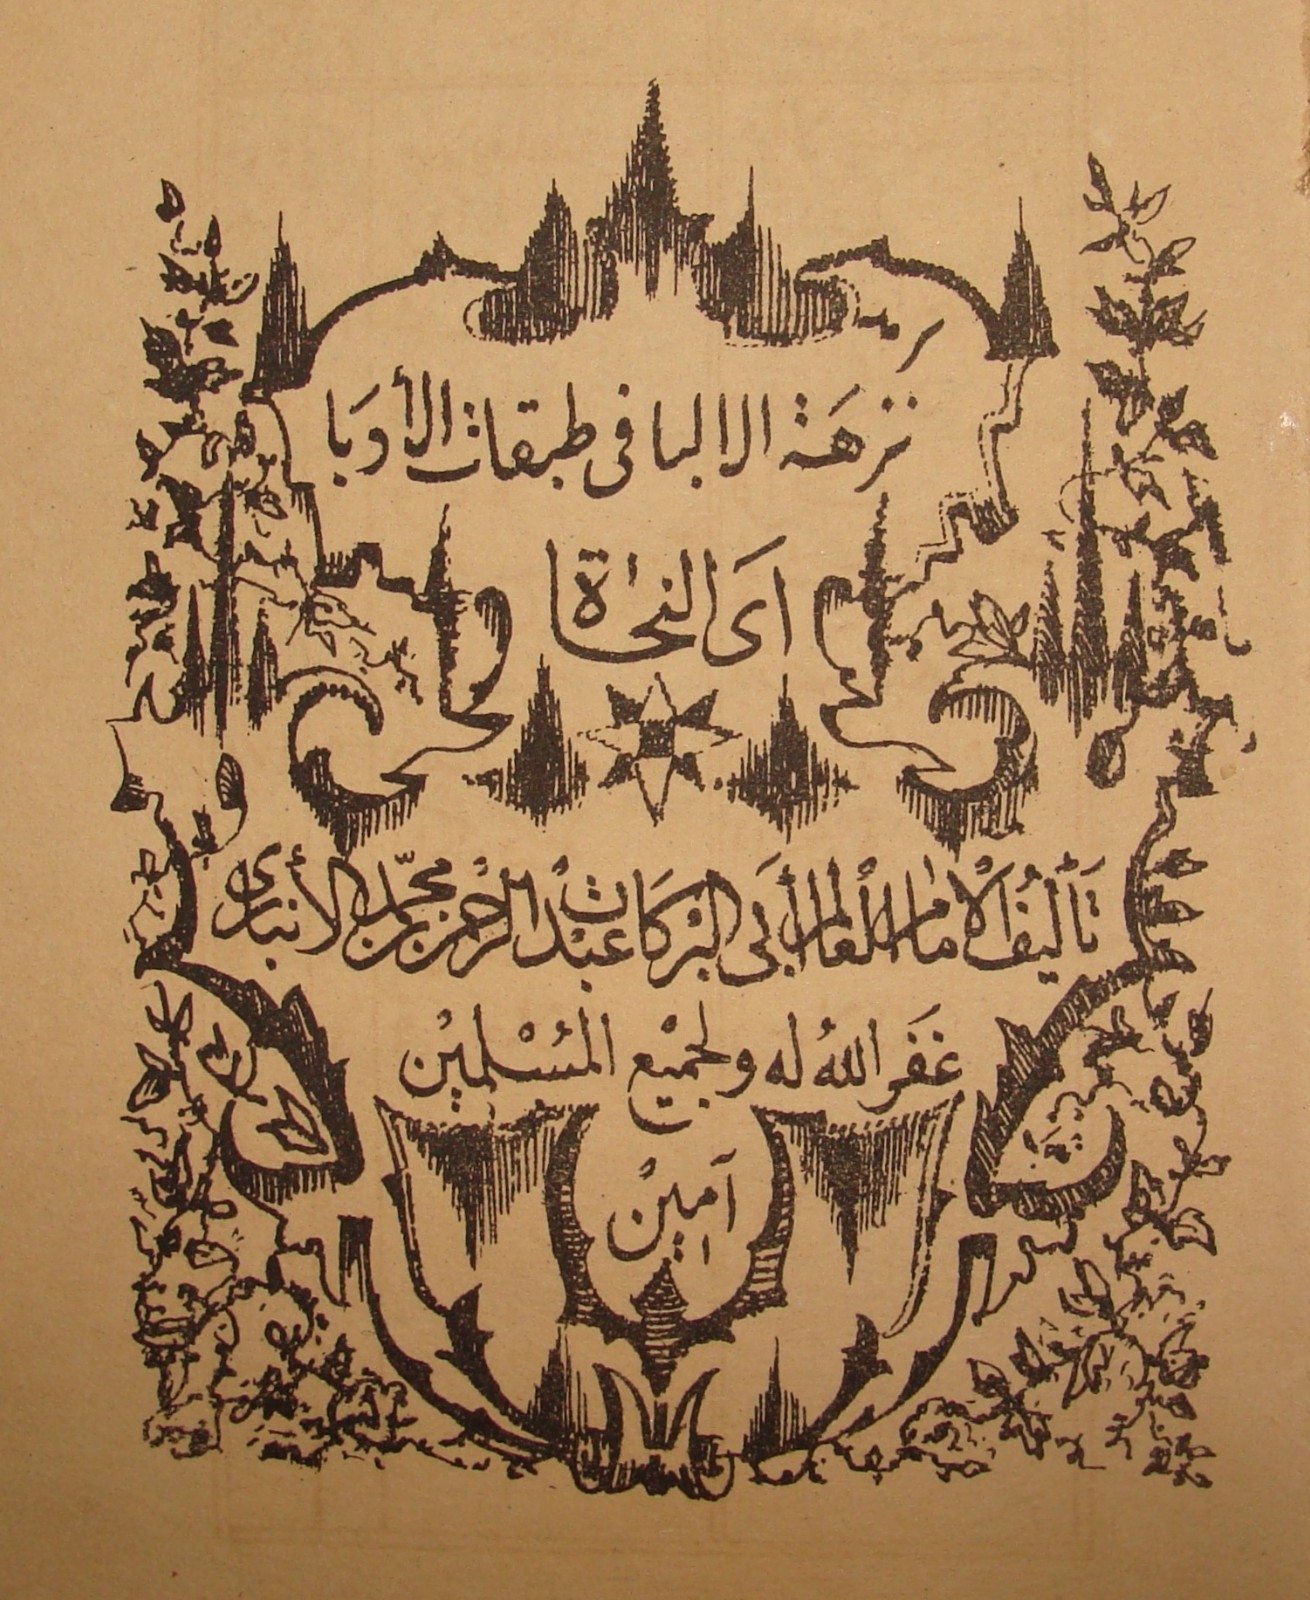 نزهة الالبا فى طبقات الأوبا
اى النحاة
تأليف الامام العالم أبى البركات عبد الرحمن بن محمد بن الأنبارى
غفر الله له ولجميع المسلمين
آمين